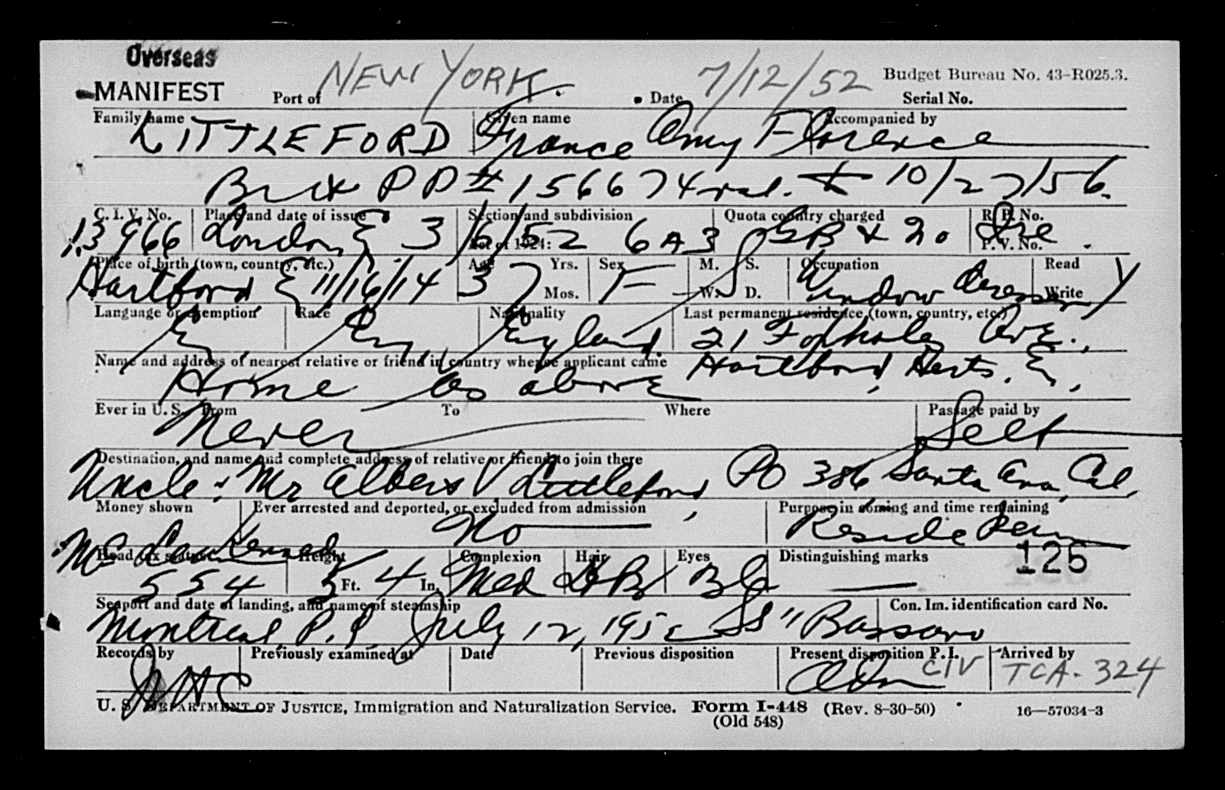 Overseas
MANIFEST Port of NEW YORK. Date 7/12/52 Budget Bureau No. 43-R025.3.
Serial No.
Family name Given name Accompanied by
LITTLEFORD France Amy Florence
Brit PP # 156674 val. to 10/27/56.
C. I. V. No. Place and date of issue Section and subdivision Quota country charged R. P. No.
Act of 1924: P. V. No.
13966 London E 3/6/52 6A3 GB & No Ire
Place of birth (town, country, etc.) Age Yrs. Sex M. S. Occupation Read
Mos. W. D. Write
Hartford E 11/16/14 37 F Window Dresser Y
Language or exemption Race Nationality Last permanent residence (town, country, etc.)
Eng England 21 Ave.,
Name and address of nearest relative or friend in country whence applicant came
Home as above Hartford, Herts. E.
Ever in U. S. From To Where Passage paid by
Never Self
Destination, and name and complete address of relative or friend to join there
Uncle: Mr Albers V Littleford, PO 386 Santa Ana, Cal.
Money shown Ever arrested and deported, or excluded from admission Purpose in coming and time remaining
No Reside Perm
Head tax status Height Complexion Hair Eyes Distinguishing marks
125
554 5 Ft. 4 In. Med D B Bl
Seaport and date of landing, and name of steamship Con. Im. identification card No.
Montreal P.Q July 12, 1952 SS "
Records by Previously examined at Date Previous disposition Present disposition P. I. Arrived by
CIV TCA. 324
U. S. DEPARTMENT OF JUSTICE, Immigration and Naturalization Service. Form I-448 (Rev. 8-30-50) 16—57034-3
(Old 548)